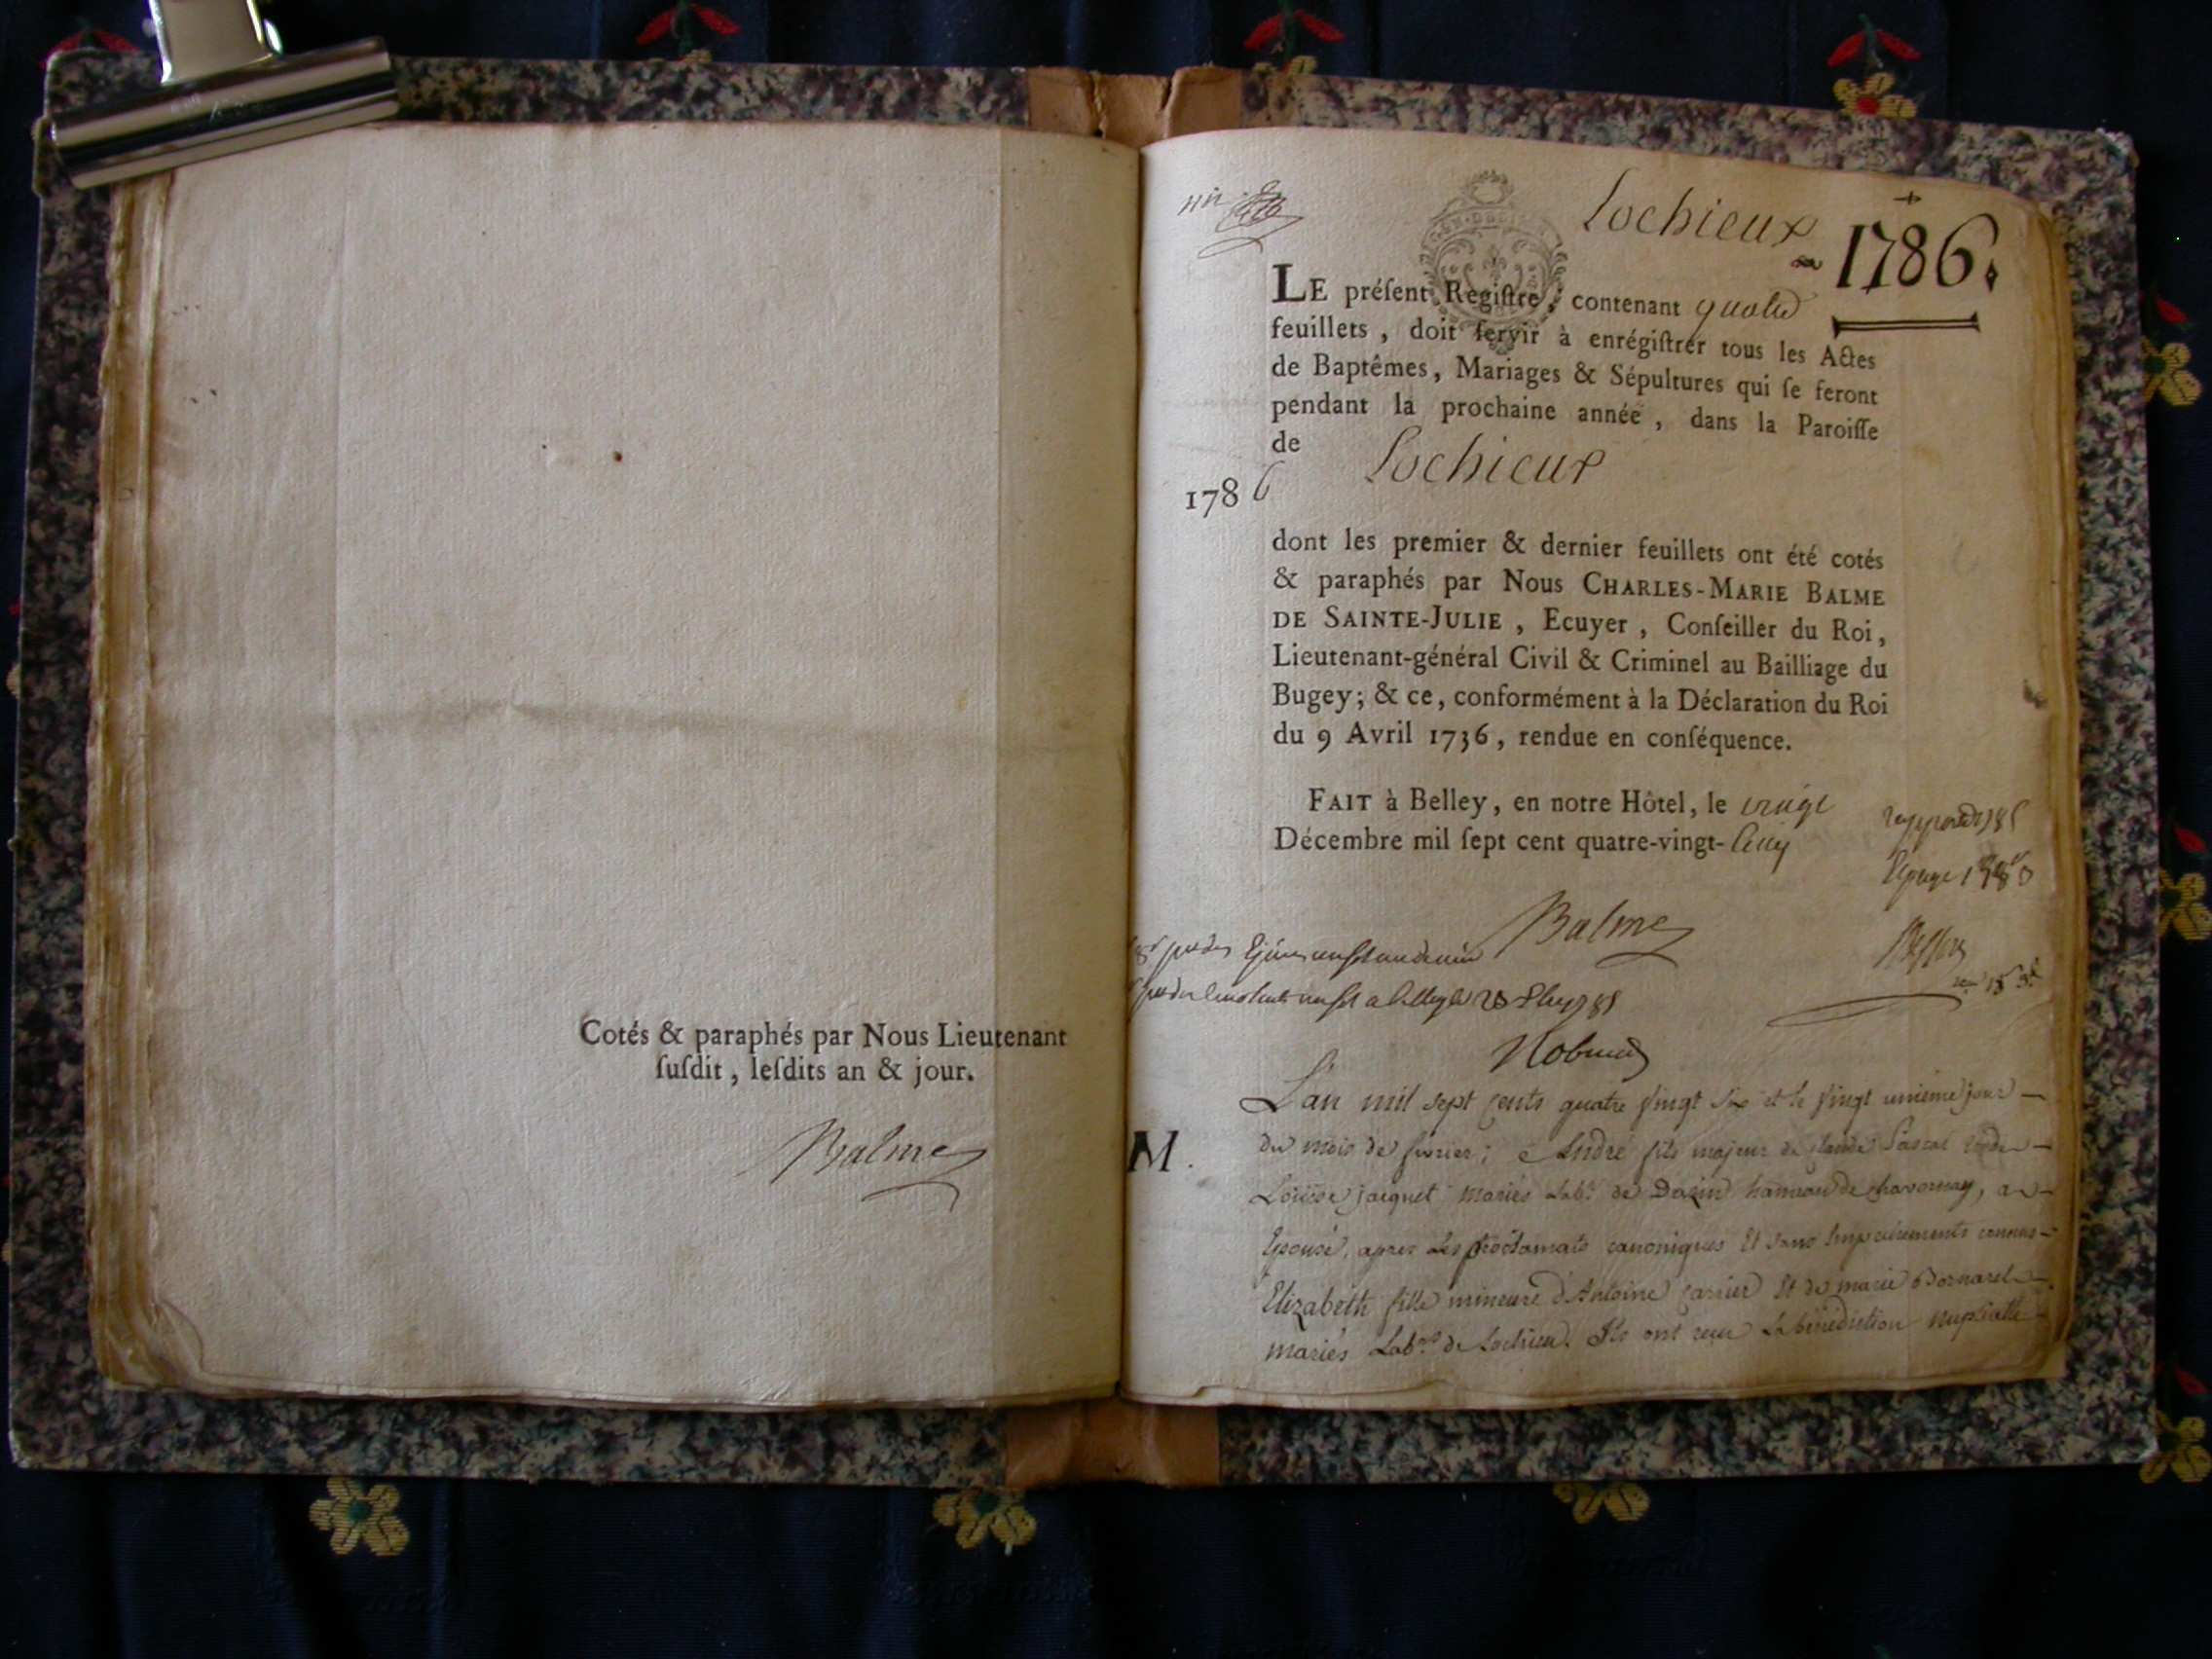 Cotés & paraphés par Nous Lieutenant
ſuſdit, leſdits an & jour.
Balme
Lochieux
1786.
LE préſent Regiſtre, contenant quatre
feuillets, doit ſervir à enrégiſtrer tous les Actes
de Baptêmes, Mariages & Sépultures qui ſe feront
pendant la prochaine année, dans la Paroiſſe
de Lochieux
1786
dont les premier & dernier feuillets ont été cotés
& paraphés par Nous CHARLES-MARIE BALME
DE SAINTE-JULIE, Ecuyer, Conſeiller du Roi,
Lieutenant-général Civil & Criminel au Bailliage du
Bugey; & ce, conformément à la Déclaration du Roi
du 9 Avril 1736, rendue en conſéquence.
FAIT à Belley, en notre Hôtel, le vingt
Décembre mil ſept cent quatre-vingt-cinq
Balme
L'an mil sept cents quatre vingt six et le vingt unième jour
M.
du mois de fevrier; André fils majeur de Claude Pascal et de
Louise jacquet mariés Labrs de Dazin hameau de chavornay, a
Epousé, apres les proclamats canoniques Et sans Empechements connus
Elizabeth fille mineure d'Antoine carrier Et de marie Bornarel
mariés Labrs de Lochieu. Ils ont reçu La bénédiction nuptialle